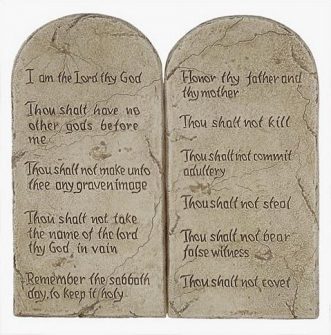 I am the Lord thy God
Thou shalt have no
other gods before
me
Thou shall not make unto
thee any graven image
Thou shalt not take
the name of the lord
thy God in vain
Remember the sabbath
day, to keep it holy
Honor thy father and
thy mother
Thou shalt not kill
Thou shalt not commit
adultery
Thou shalt not steal
Thou shalt not bear
false witness
Thou shalt not covet